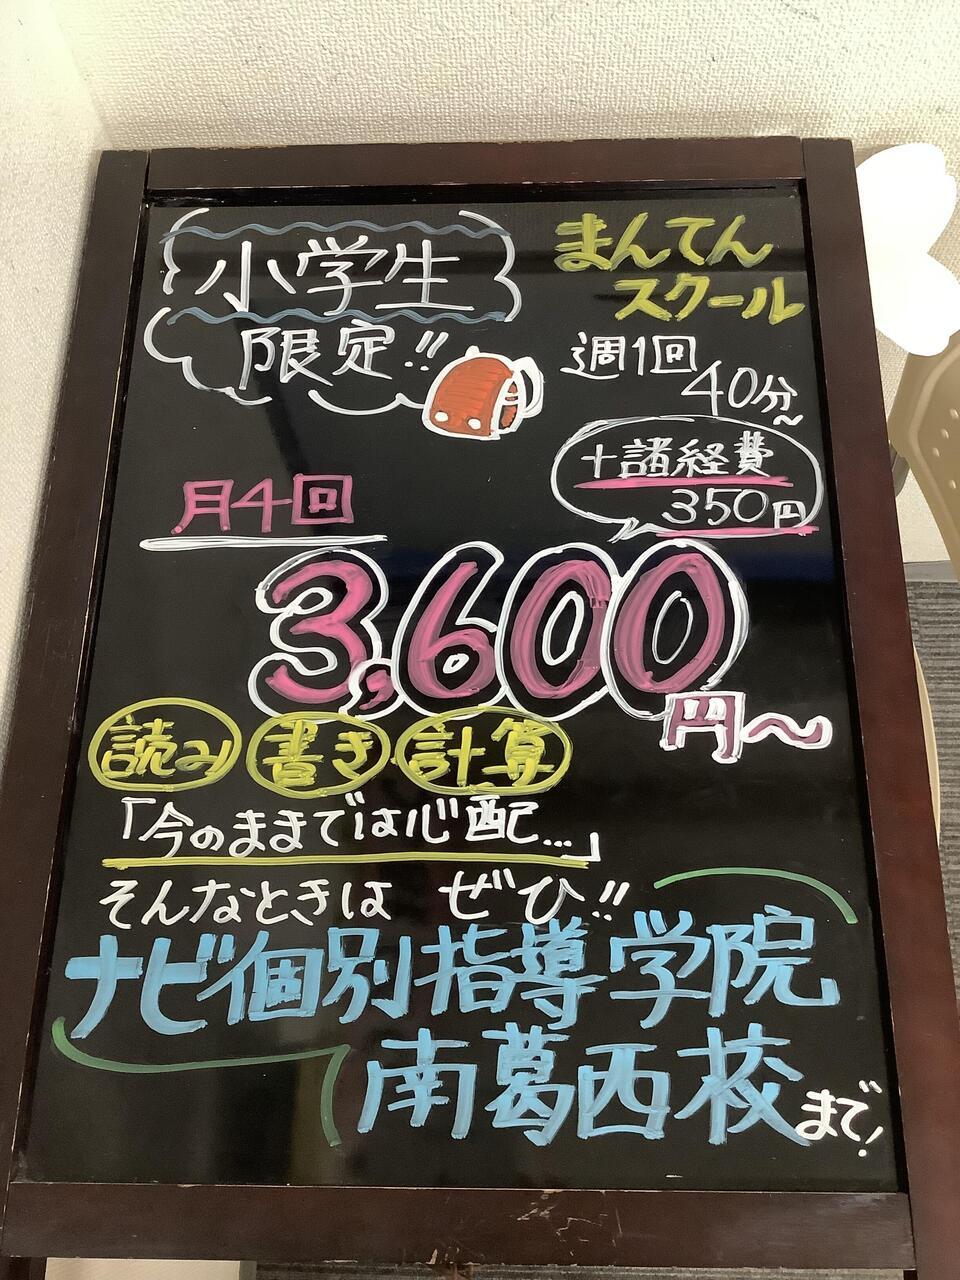 小学生
限定!!
まんてん
スクール
週1回
40分～
+諸経費
350円
月4回
3,600
円～
読み 書き 計算
「今のままでは心配…」
そんなときは ぜひ!!
ナビ個別指導学院
南葛西校まで!